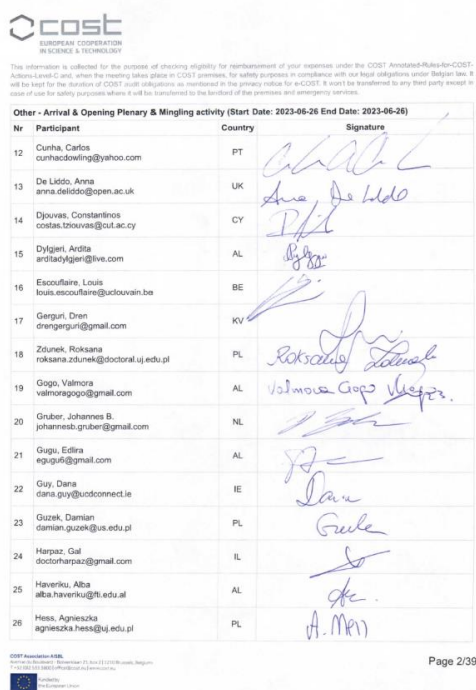 cost
EUROPEAN COOPERATION
IN SCIENCE & TECHNOLOGY
This information is collected for the purpose of checking eligibility for reimbursement of your expenses under the COST Annotated-Rules-for-COST-
Actions-Level-C and, when the meeting takes place in COST premises, for safety purposes in compliance with our legal obligations under Belgian law. It
will be kept for the duration of COST audit obligations as mentioned in the privacy notice for e-COST. It won't be transferred to any third party except in
case of use for safety purposes where it will be transferred to the landlord of the premises and emergency services.
Other - Arrival & Opening Plenary & Mingling activity (Start Date: 2023-06-26 End Date: 2023-06-26)
Nr Participant Country Signature
12 Cunha, Carlos PT
cunhacdowling@yahoo.com
13 De Liddo, Anna UK Anna De Liddo
anna.deliddo@open.ac.uk
14 Djouvas, Constantinos CY
costas.tziouvas@cut.ac.cy
15 Dylgjeri, Ardita AL
arditadylgjeri@live.com
16 Escouflaire, Louis BE
louis.escouflaire@uclouvain.be
17 Gerguri, Dren KV
drengerguri@gmail.com
18 Zdunek, Roksana PL Roksana Zdunek
roksana.zdunek@doctoral.uj.edu.pl
19 Gogo, Valmora AL Valmora Gogo
valmoragogo@gmail.com
20 Gruber, Johannes B. NL
johannesb.gruber@gmail.com
21 Gugu, Edlira AL
egugu6@gmail.com
22 Guy, Dana IE Dana
dana.guy@ucdconnect.ie
23 Guzek, Damian PL
damian.guzek@us.edu.pl
24 Harpaz, Gal IL
doctorharpaz@gmail.com
25 Haveriku, Alba AL
alba.haveriku@fti.edu.al
26 Hess, Agnieszka PL
agnieszka.hess@uj.edu.pl
COST Association AISBL
Funded by
the European Union
Page 2/39